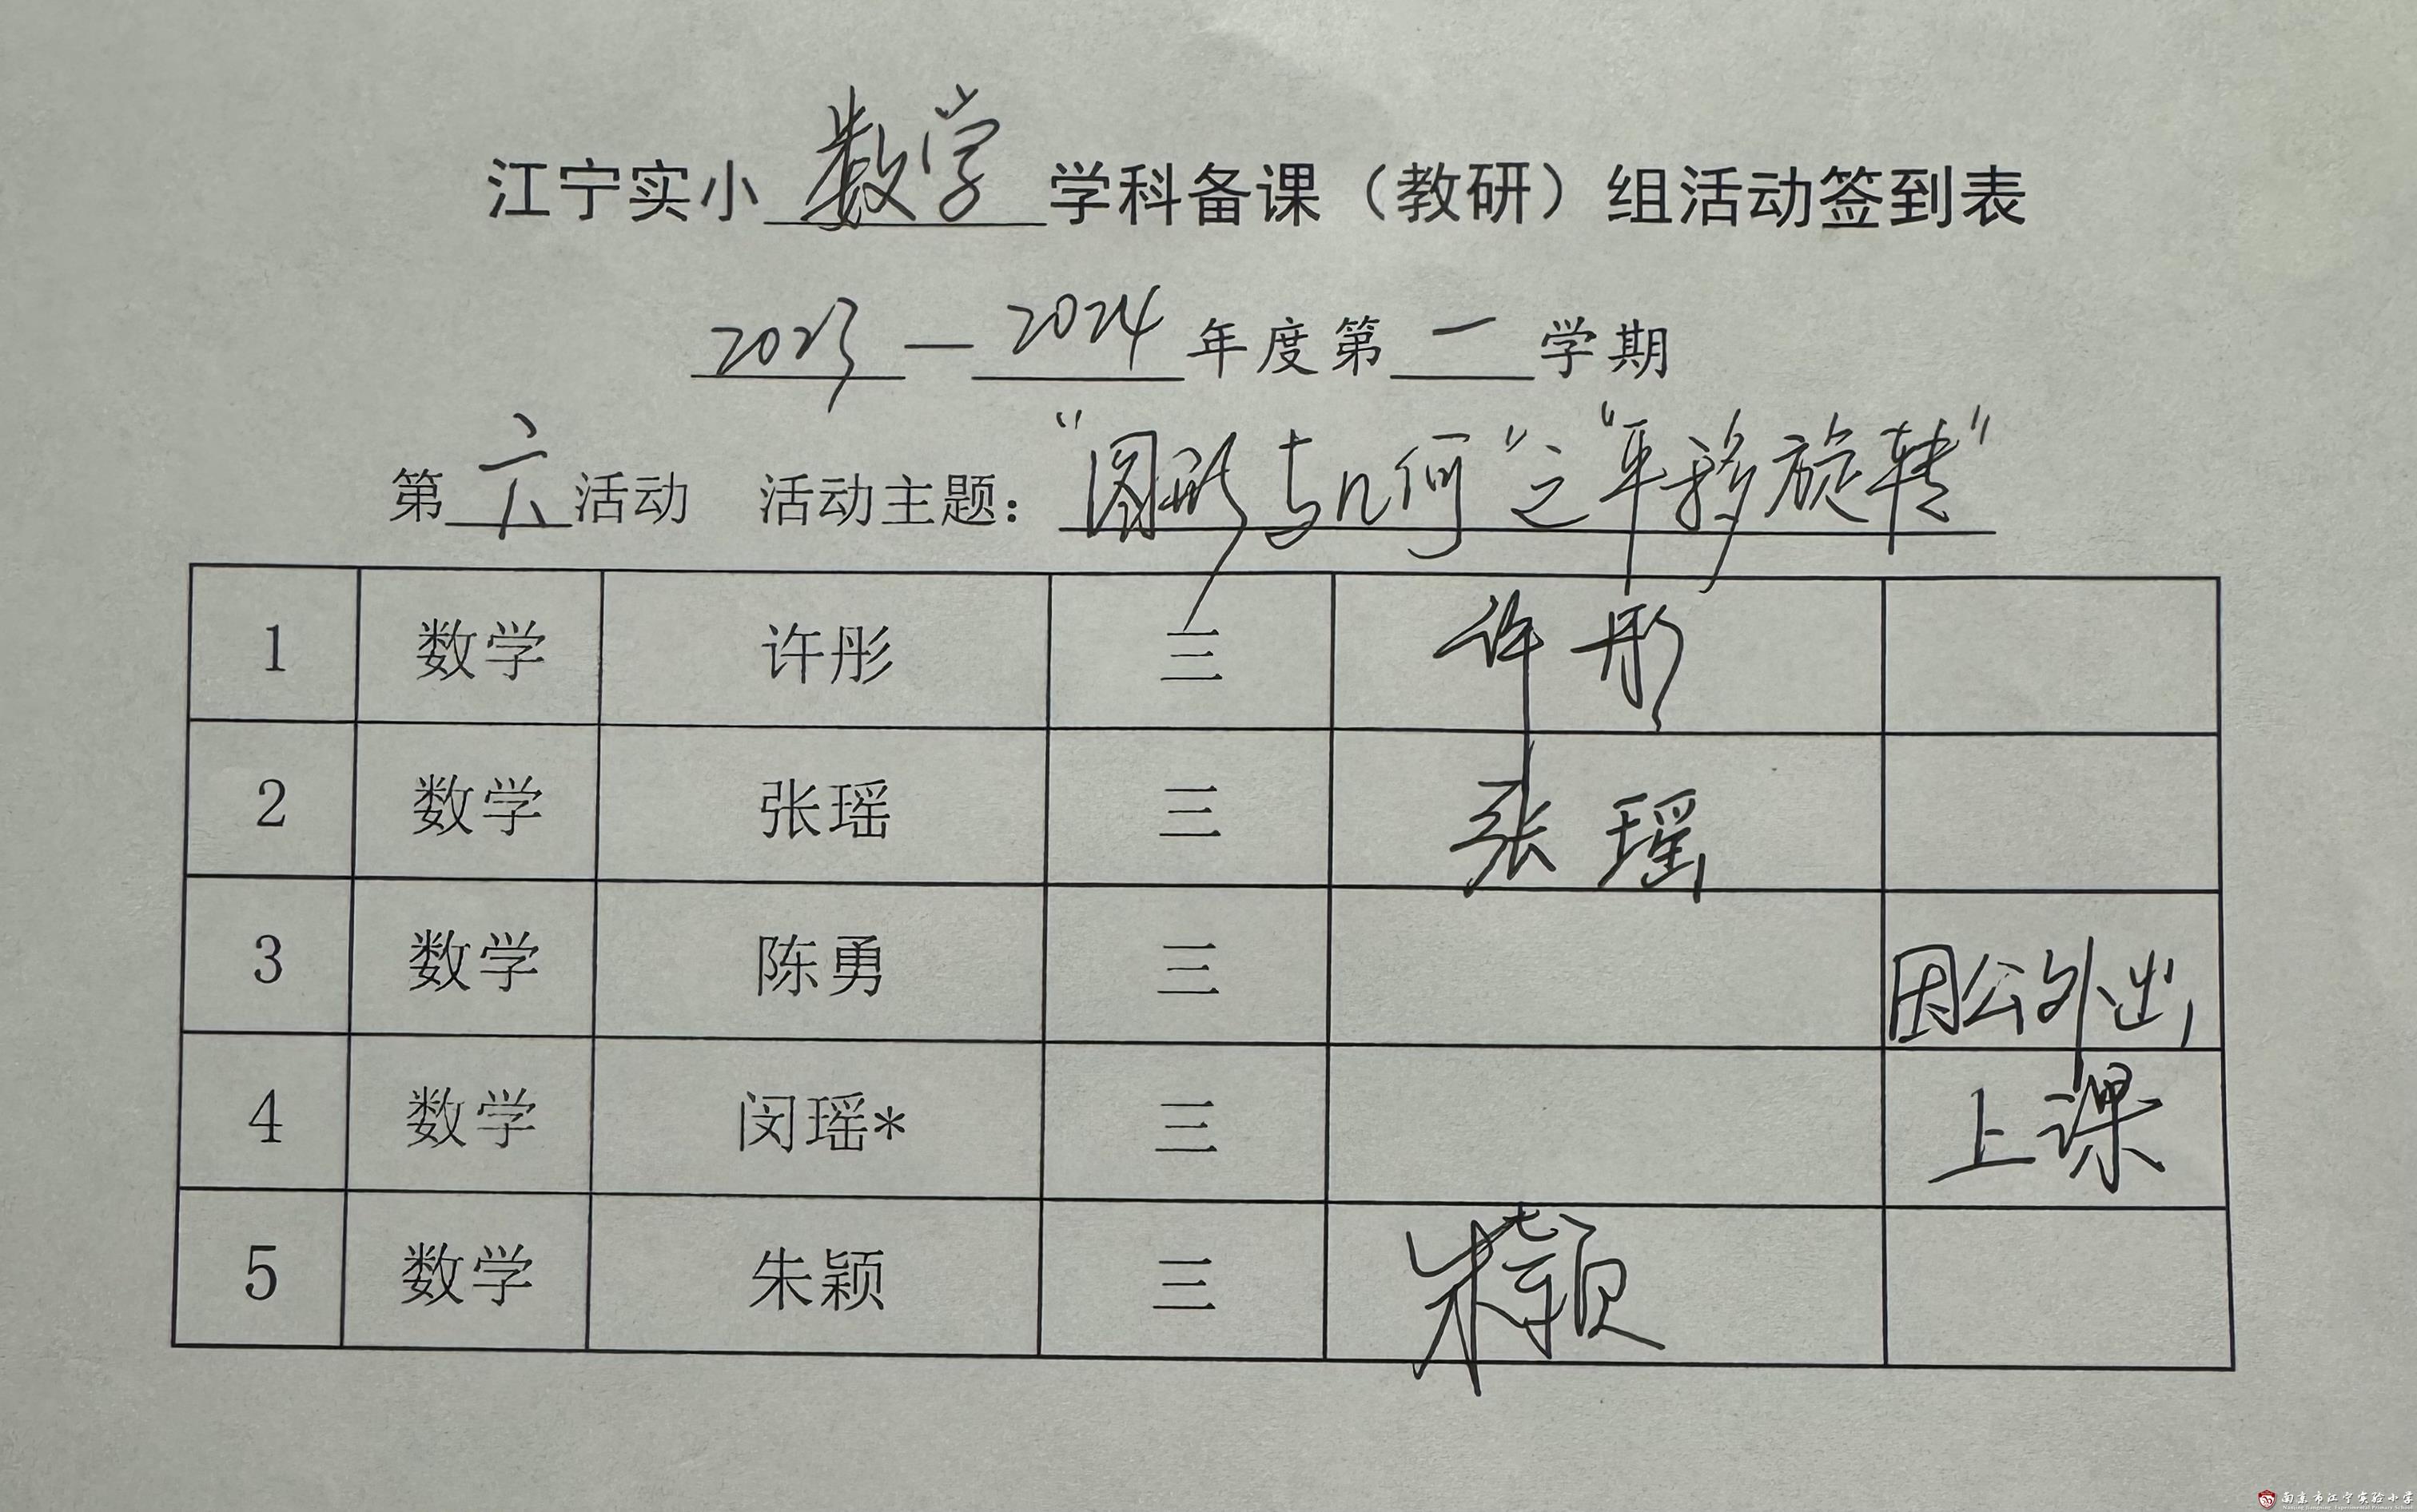 江宁实小数学学科备课（教研）组活动签到表
2023—2024年度第一学期
第六活动 活动主题：“图形与几何”之“平移旋转”
1 数学 许彤 三 许彤
2 数学 张瑶 三 张瑶
3 数学 陈勇 三 因公外出
4 数学 闵瑶* 三 上课
5 数学 朱颖 三 朱颖
南京市江宁实验小学